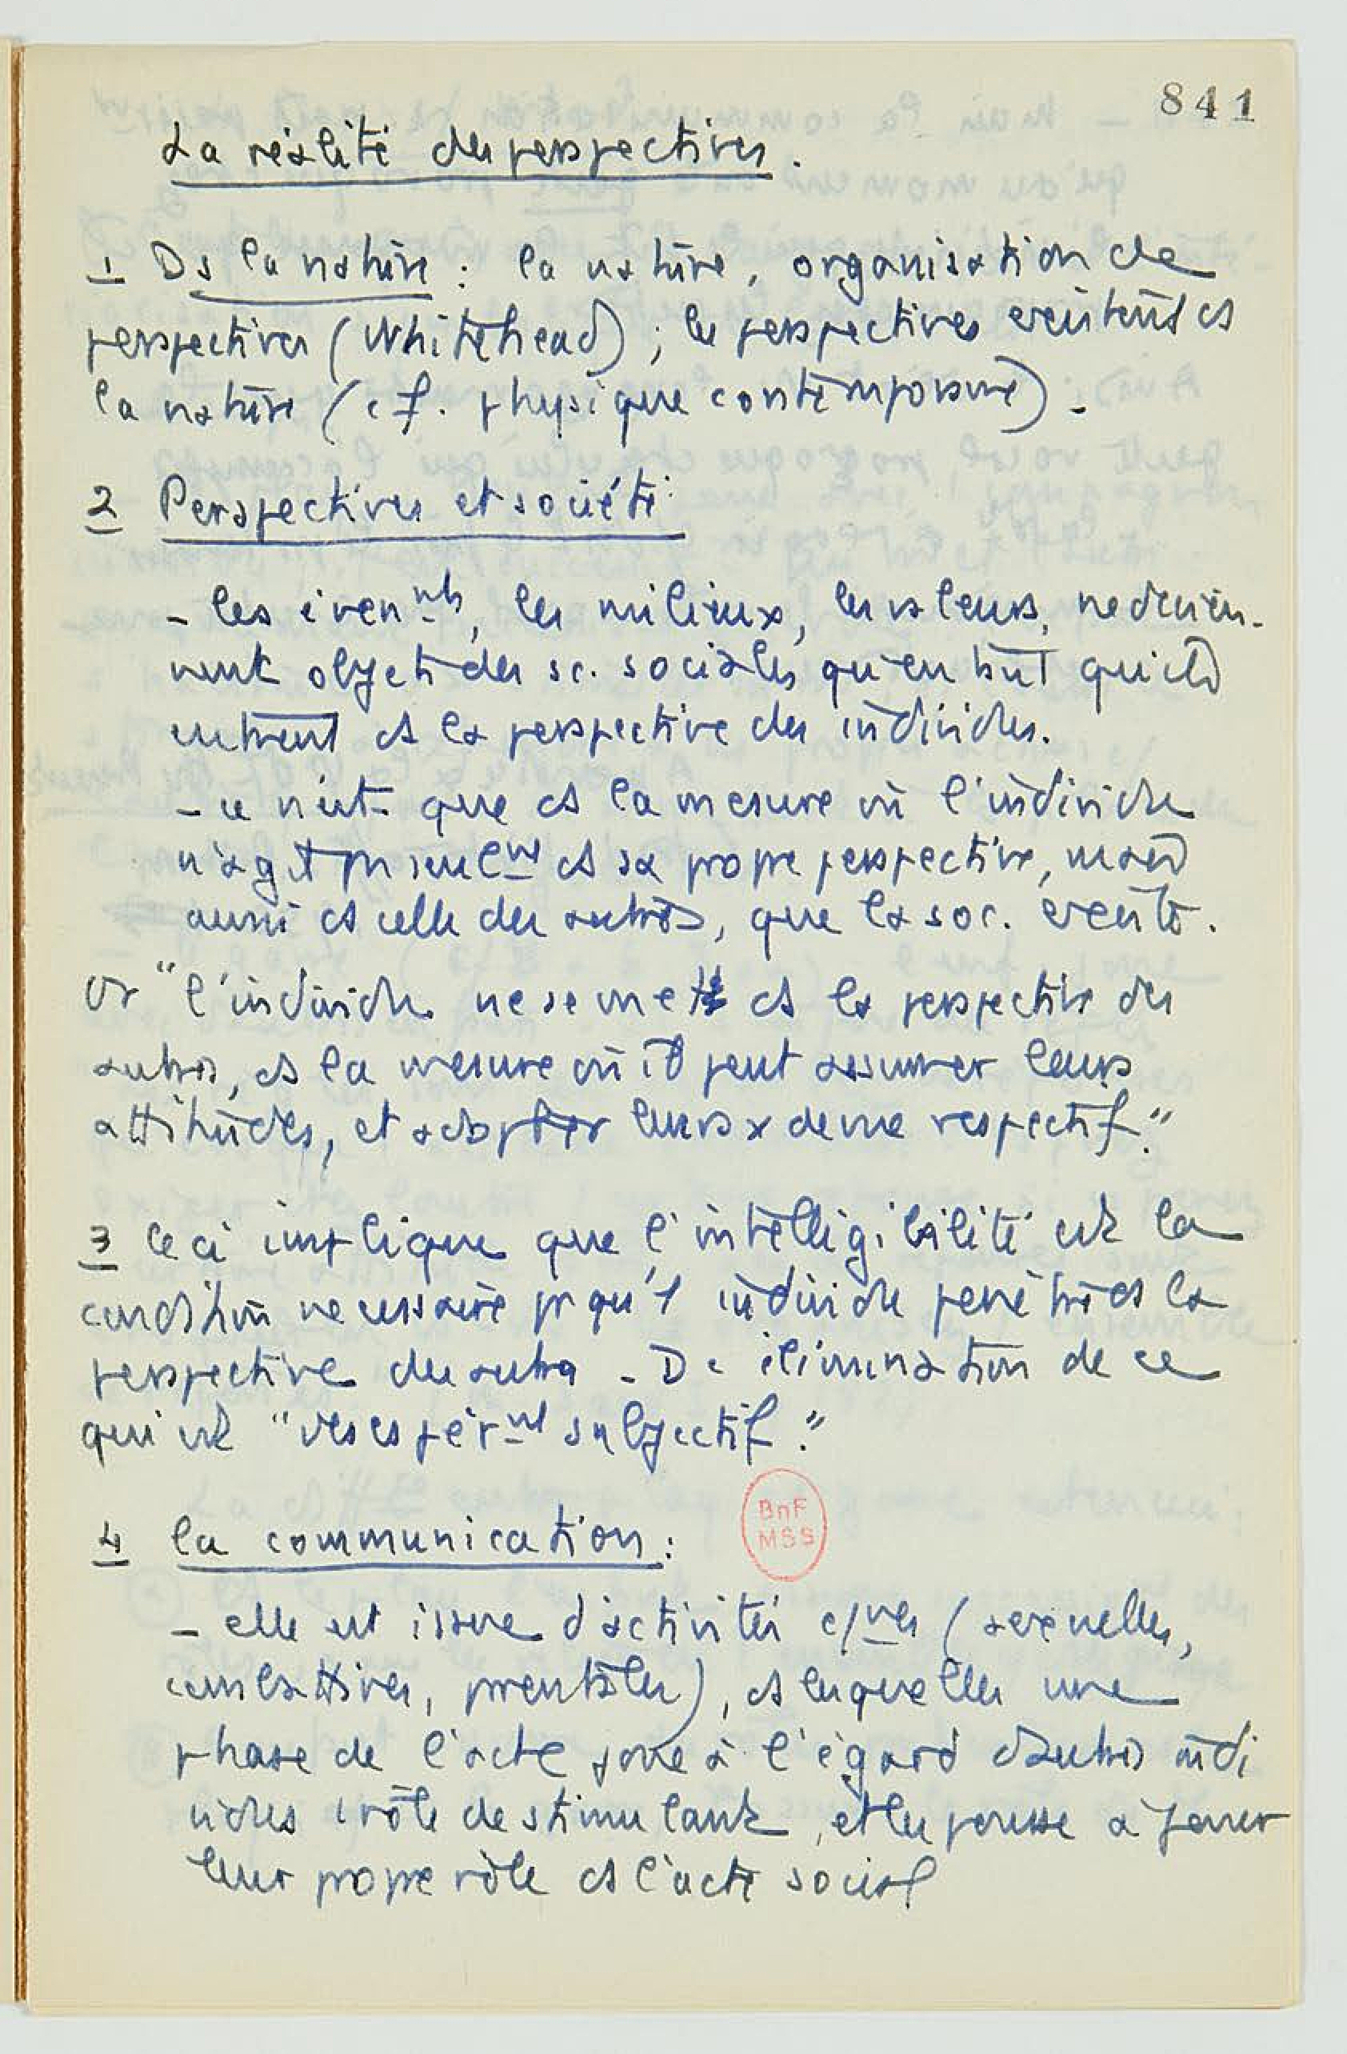 841
La réalité des perspectives.
1 Ds la nature : la nature, organisation de
perspectives (Whitehead) ; les perspectives existent ds
la nature (cf. physique contemporaine).
2 Perspectives et société :
- les évennts, les milieux, les valeurs, ne devien-
nent objets des sc. sociales, qu'en tant qu'ils
entrent ds la perspective des individus.
- ce n'est que ds la mesure où l'individu
n'agit pas seulent ds sa propre perspective, mais
aussi ds celle des autres, que la soc. existe.
Or "l'individu ne se met ds la perspective des
autres, ds la mesure où il peut assumer leurs
attitudes, et adopter leurs x de vue respectif."
3 Ceci implique que l'intelligibilité est la
condition nécessaire pr qu'1 individu pénètre ds la
perspective des autres - Dc élimination de ce
qui est "désespérnt subjectif."
4 la communication :
BnF
MSS
- elle est issue d'activités c/ves (sexuelles,
combattives, parentales), ds lesquelles une
phase de l'acte joue à l'égard d'autres indi
vidus 1 rôle de stimulant, et les pousse à jouer
leur propre rôle ds l'acte social